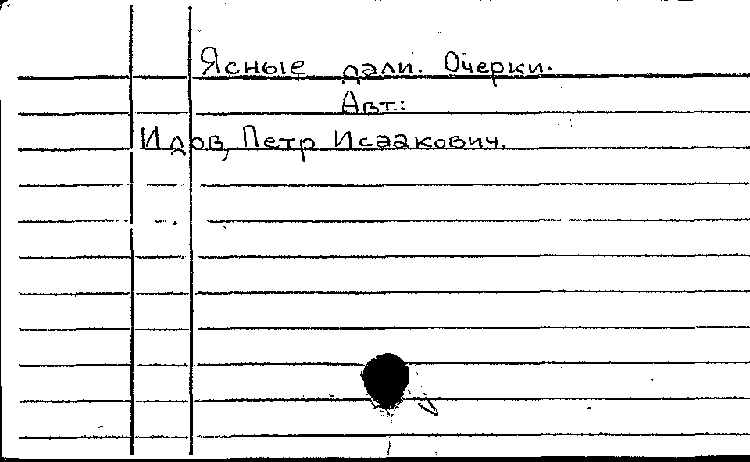 Ясные дали. Очерки.
Авт:
Идов, Петр Исаакович.